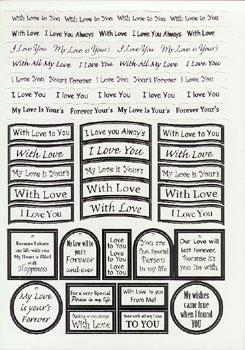 With Love to You With Love to You With Love to You
With Love I Love You Always With Love With Love
I Love You My Love Is Yours I Love You I Love You
With All My Love I Love You With All My Love I Love You
I Love You Your's Forever I Love You Your's Forever I Love You
I Love You I Love You I Love You I Love You I Love You
My Love Is Your's Forever Your's My Love Is Your's Forever Your's
With Love to You
I Love you Alway's
With Love to You
With Love
I Love You
With Love
My Love is Your's
My Love is Your's
My Love is Your's
With Love
With Love
With Love
I Love You
With Love
I Love You
Because I share
my life with you
My Heart is filled
with
Happiness
My Love will be
your's
Forever
and ever
Love
to You
Love
to You
Love
to You
You are
that Special
Person to
my life
Our Love will
last Forever,
because it's
You I'm with
My Love
is your's
Forever
For a very Special
Person in my life
With Love to you
From Me!
My wishes
came true
when I found
YOU
Thinking of you always
With Love
Sent with all my Love
TO YOU